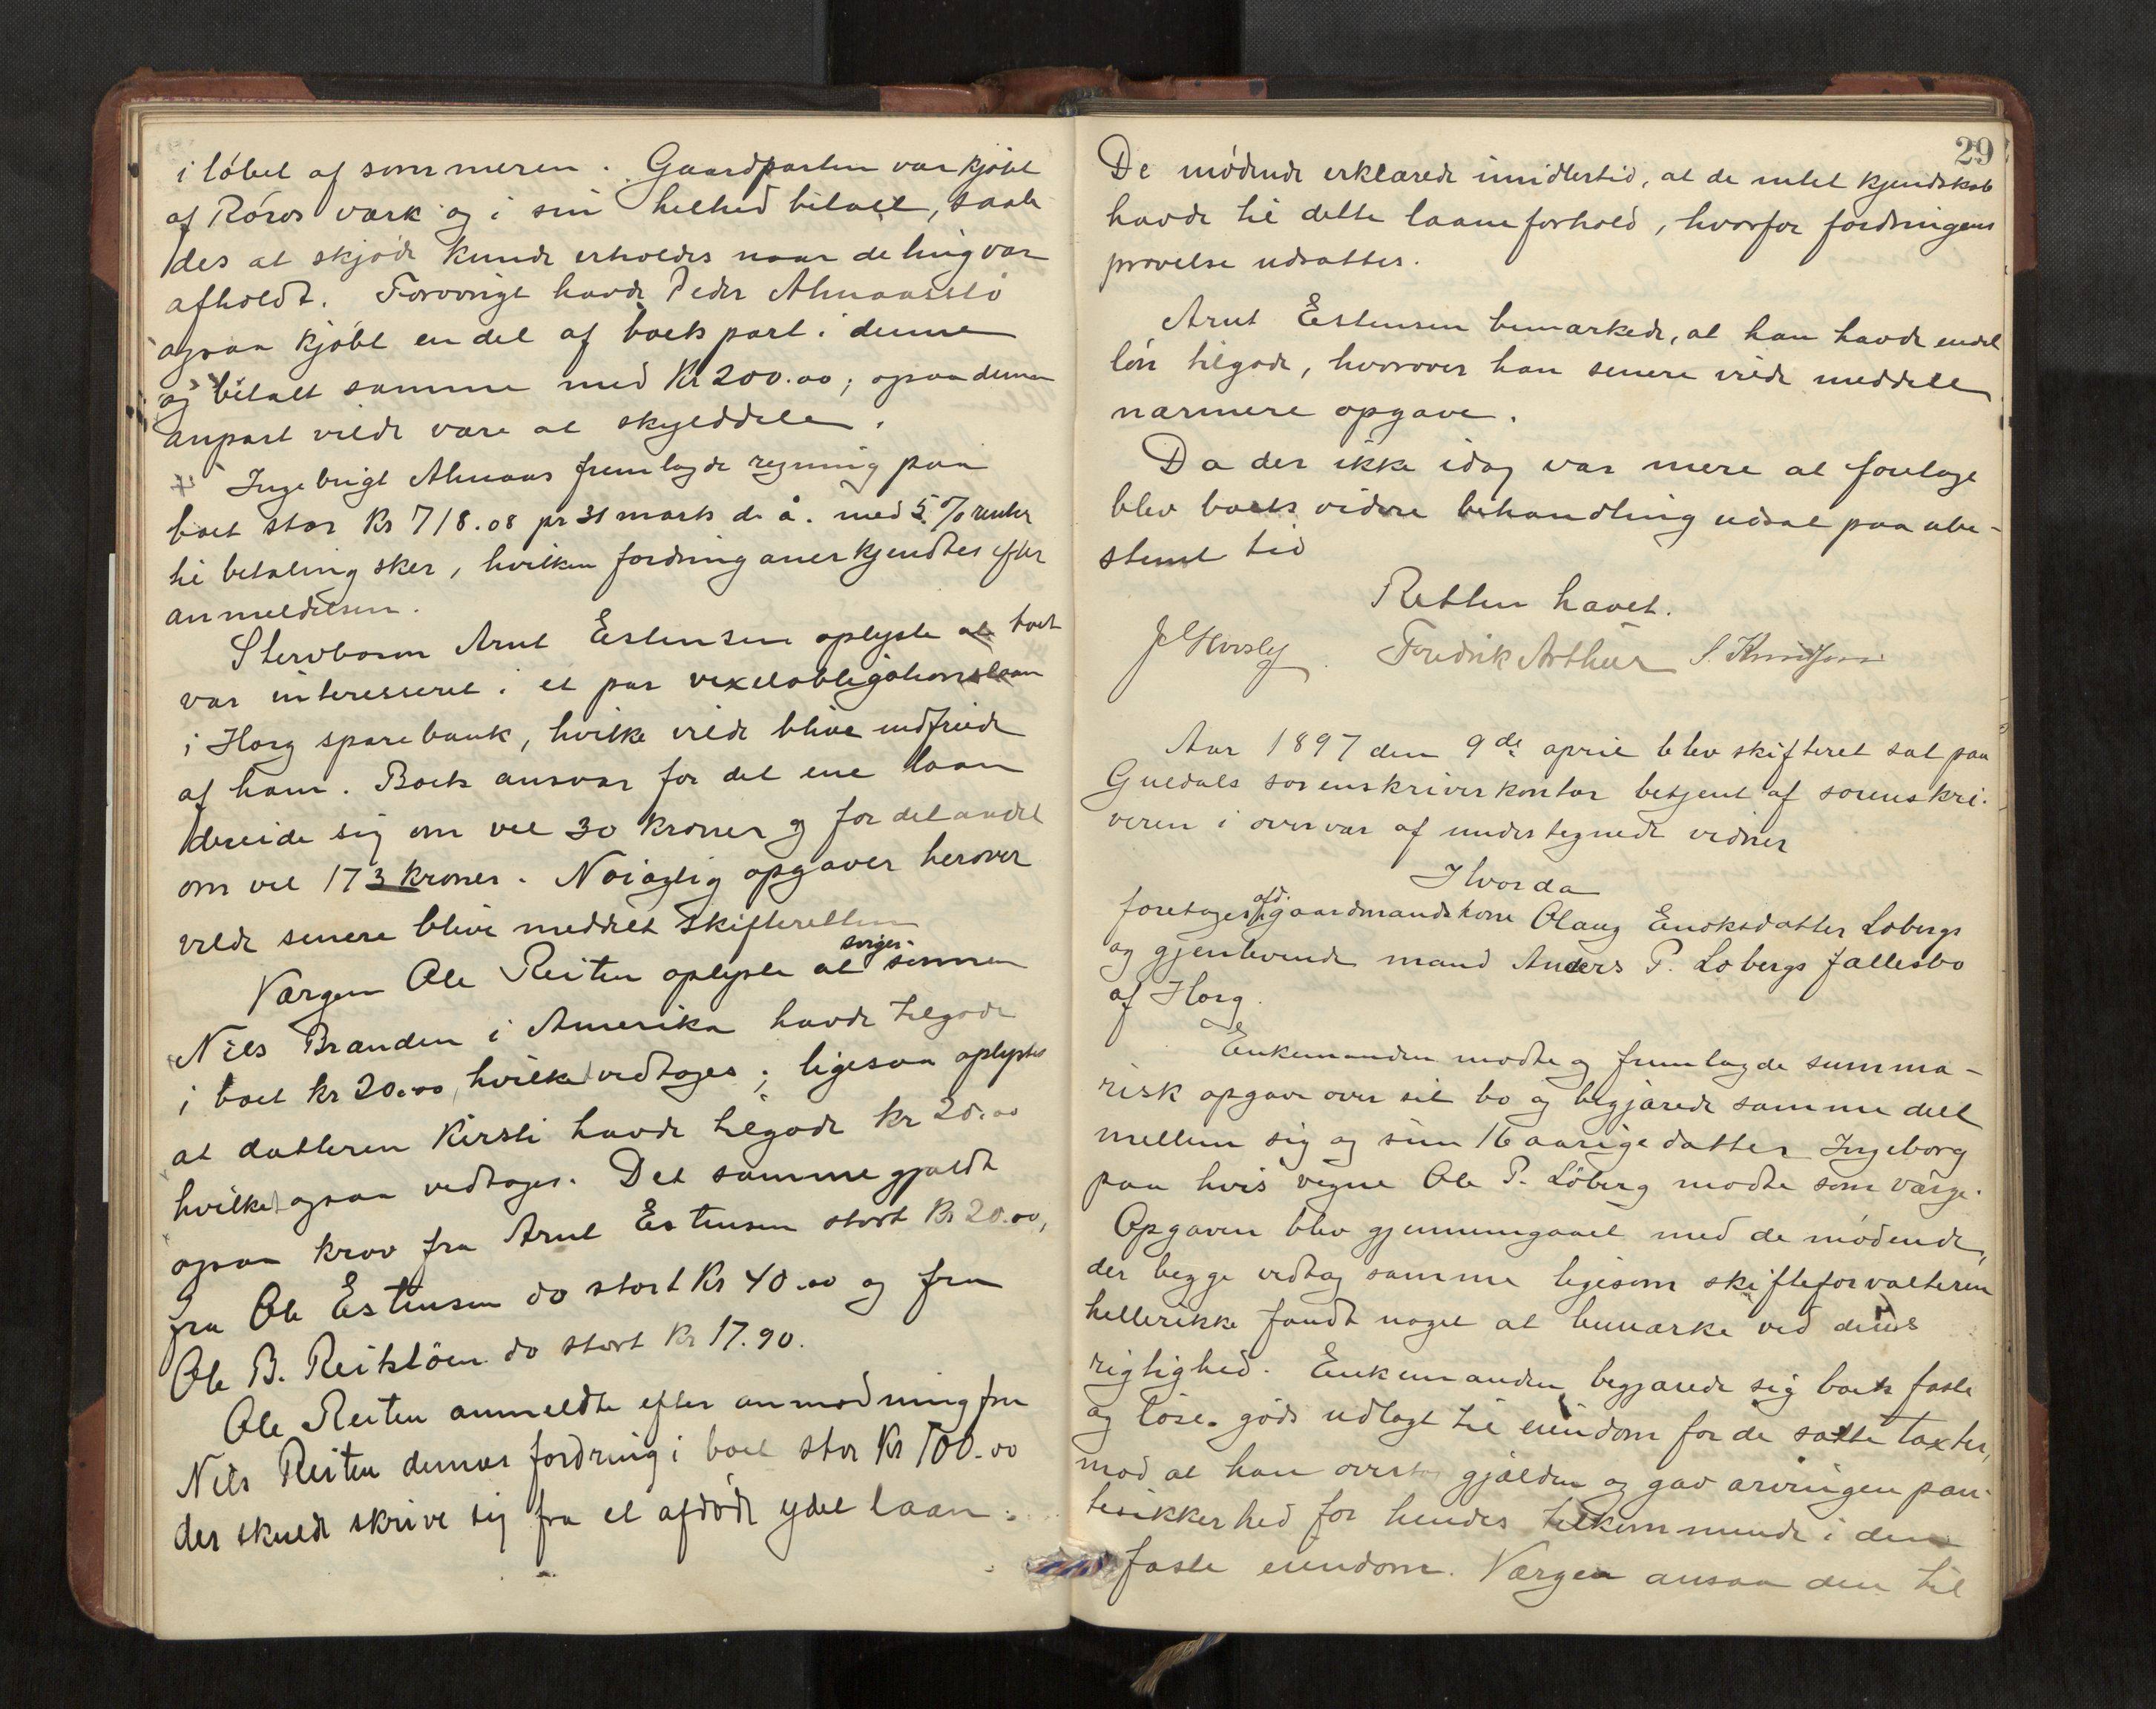 i løbet af sommeren. Gaardparten var kjøbt
af Røros værk og i sin helhed betalt, saale
des at skjøde kunde erholdes naar deling var
afholdt. Forøvrigt havde Peder Almaasslø
ogsaa kjøbt en del af boets part i denne
og betalt samme med Kr 200.00; ogsaa denne
anpart vilde være at skylddele.
Ingebrigt Almaas fremlagde regning paa
boet stor Kr 718.08 pr 31 marts d. å. med 5% renter
til betaling sker, hvilken fordring anerkjendtes efter
anmeldelsen.
Stervbosøn Arnt Estensen oplyste at boet
var interesseret i et par vexelobligationslaan
i Horg sparebank, hvilke vilde blive indfriede
af ham. Boets ansvar for det ene laan
dreide sig om vel 30 kroner og for det andet
om vel 173 kroner. Nøiagtig opgaver herover
vilde senere blive meddelt skifteretten
Værgen Ole Reiten oplyste at sønnen
Nils Branden i Amerika havde tilgode
i boet kr 20.00, hvilket vedtoges; ligesaa oplystes
at datteren Kirsti havde tilgode kr 20.00
hvilket ogsaa vedtoges. Det samme gjaldt
ogsaa krav fra Arnt Estensen stort Kr 20.00,
fra Ole Estensen do stort Kr 40.00 og fra
Ole B. Reitsløen do stort Kr 17.90.
Ole Reiten anmeldte efter anmodning fra
Nils Reiten dennes fordring i boet stor Kr 100.00
der skulde skrive sig fra et afdøde ydet laan.
29
De mødende erklærede imidlertid, at de intet kjendskab
havde til dette laaneforhold, hvorfor fordringens
prøvelse udsattes.
Arnt Estensen bemærkede, at han havde endel
løn tilgode, hvorover han senere vilde meddele
nærmere opgave.
Da der ikke idag var mere at foretage
blev boets videre behandling udsat paa ube-
stemt tid
Retten hævet.
Fredrik Arthur
Aar 1897 den 9de april blev skifteret sat paa
Guldals sorenskriverkontor betjent af sorenskri-
veren i overvær af undertegnede vidner
Hvorda
foretoges afd. gaardmandskone Olaug Enoksdatter Løbergs
og gjenlevende mand Anders P. Løbergs fællesbo
af Horg.
Enkemanden mødte og fremlagde summa-
risk opgave over sit bo og begjærede samme delt
mellem sig og sin 16 aarige datter Ingeborg
paa hvis vegne Ole P. Løberg mødte som værge.
Opgaven blev gjennemgaaet med de mødende,
der begge vedtog samme ligesom skifteforvalteren
hellerikke fandt noget at bemærke ved dens
rigtighed. Enkemanden begjærede sig boets faste
og løse gods udlagt til eiendom for de satte taxter,
mod at han overtog gjælden og gav arvingen pan-
tesikkerhed for hendes tilkommende i den
faste eiendom. Værgen ansaa den til